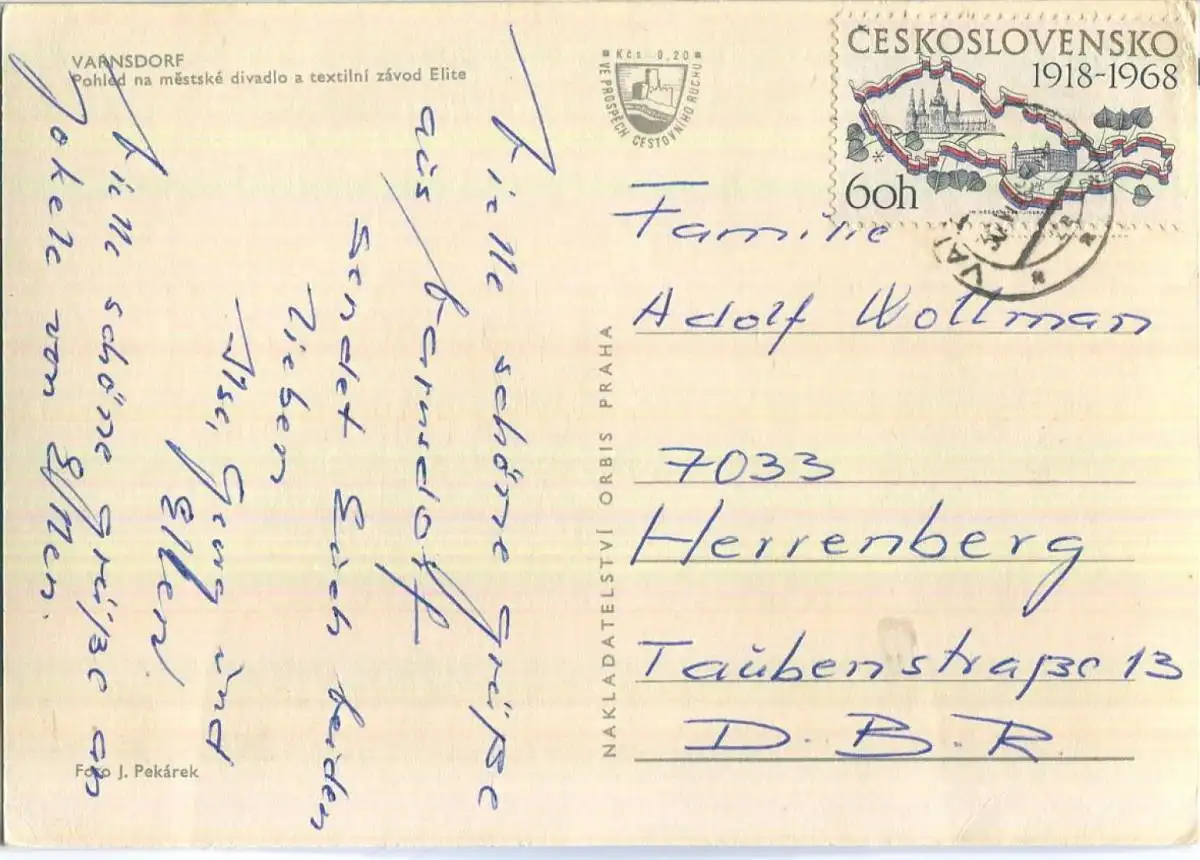 VARNSDORF
Pohled na městské divadlo a textilní závod Elite
Kčs 0,20
VE PROSPĚCH CESTOVNÍHO RUCHU
ČESKOSLOVENSKO
1918-1968
60h
Viele schöne Grüße
aus Varnsdorf
sendet Euch beuden
Lieben
Ilse, Georg und
Ellen
Viele schöne Grüße an
von Ellen.
NAKLADATELSTVÍ ORBIS PRAHA
Familie
Adolf Wollman
7033
Herrenberg
Taubenstraße 13
D.B.R.
Foto J. Pekárek